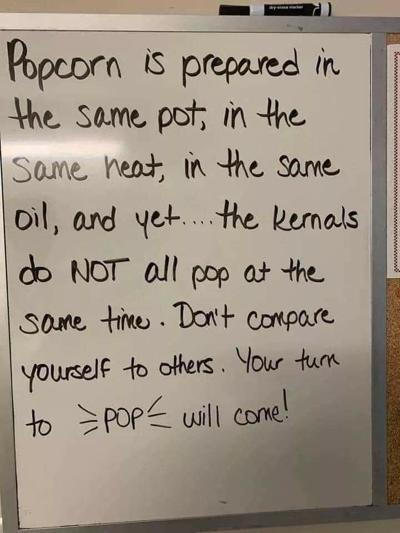 dry-erase marker
Popcorn is prepared in
the same pot, in the
same heat, in the same
oil, and yet....the kernals
do NOT all pop at the
same time. Don't compare
yourself to others. Your turn
to POP will come!